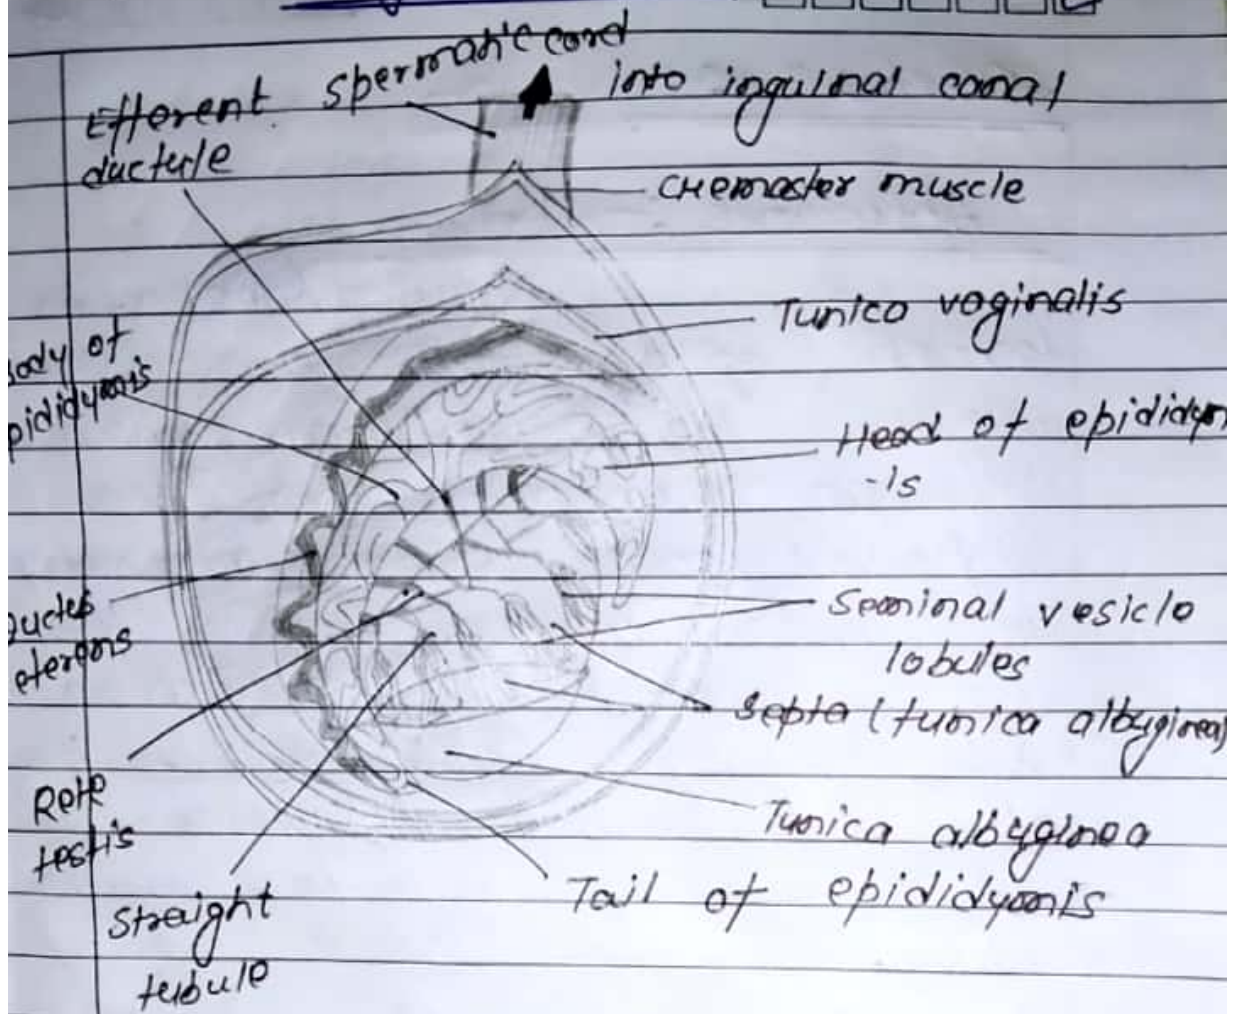 spermatic cord
into inguinal canal
Efferent
ductule
cremaster muscle
Tunica vaginalis
body of
pididymis
Head of epididym
-is
Seminal vesicle
lobules
uctes
eferens
Septa (tunica albuginea)
Rete
testis
Tunica albuginea
Tail of epididymis
Straight
tubule